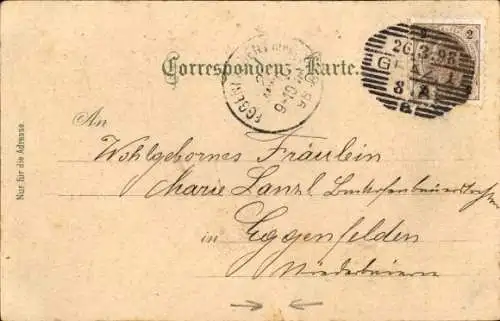 Correspondenz-Karte.
2 2
26.3.98
GRAZ 1
8
a
Nur für die Adresse.
An
Wohlgebornes Fräulein
Marie Lanzl
in Eggenfelden
Niederbaiern